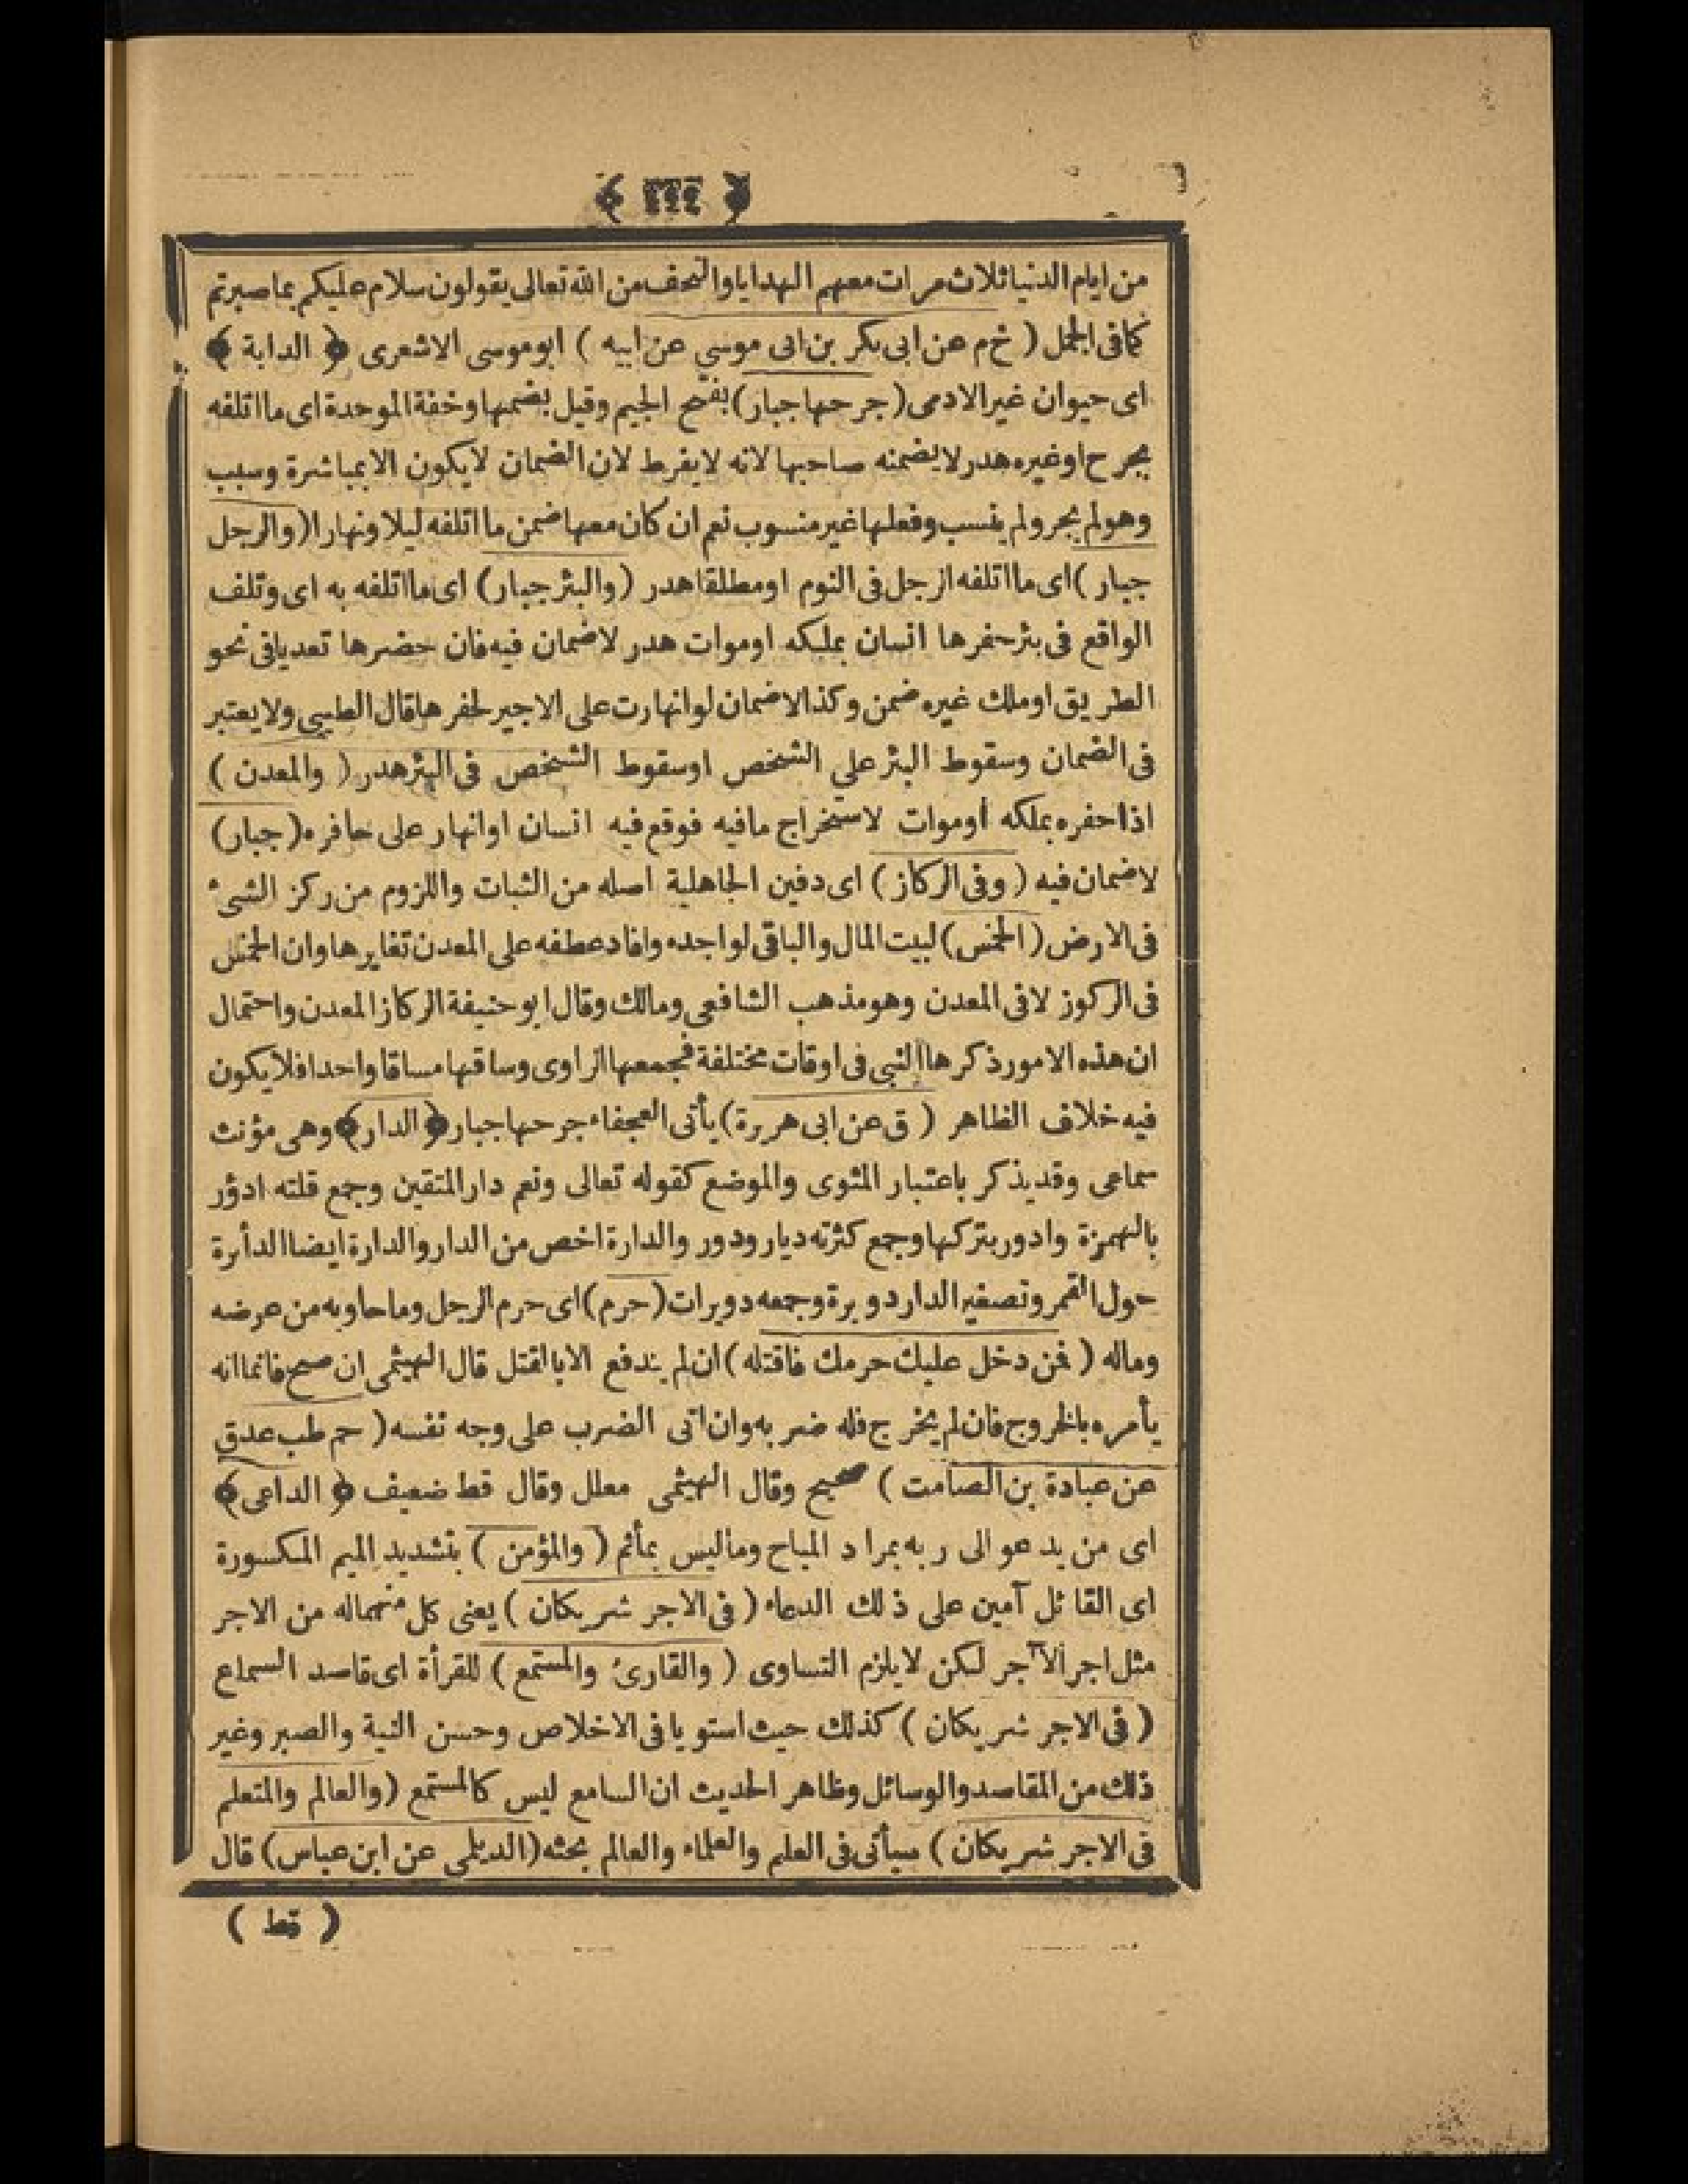 من ايام الدنيا ثلاث مرات معهم الهدايا والتحف من الله تعالى يقولون سلام عليكم بما صبرتم
كما فى الجمل ( خ م عن ابى بكر بن ابى موسى عن ابيه ) ابو موسى الاشعرى ﴿ الدابة ﴾
اى حيوان غير الادمى ( جرحها جبار ) بفتح الجيم وقيل بضمها وخفة الموحدة اى ما اتلفه
بجرح او غيره هدر لا يضمنه صاحبها لانه لا يفرط لان الضمان لا يكون الا بمباشرة وسبب
وهو لم يجر ولم ينسب وفعلها غير منسوب نعم ان كان معها ضمن ما اتلفه ليلا ونهارا ( والرجل
جبار ) اى ما اتلفه الرجل فى النوم او مطلقا هدر ( والبئر جبار ) اى ما اتلفه به اى وتلف
الواقع فى بئر حفرها انسان بملكه او موات هدر لا ضمان فيه فان حضرها تعديا فى نحو
الطريق او ملك غيره ضمن وكذا لا ضمان لو انهارت على الاجير لحفرها قال الطيبى ولا يعتبر
فى الضمان وسقوط البئر على الشخص او سقوط الشخص فى البئر هدر ( والمعدن )
اذا حفره بملكه او موات لاستخراج ما فيه فوقع فيه انسان او انهار على حافره ( جبار )
لا ضمان فيه ( وفى الركاز ) اى دفين الجاهلية اصله من الثبات واللزوم من ركز الشئ
فى الارض ( الخمس ) لبيت المال والباقى لواجده وافاد عطفه على المعدن تغايرها وان الخمس
فى الركوز لا فى المعدن وهو مذهب الشافعى ومالك وقال ابو حنيفة الركاز المعدن واحتمال
ان هذه الامور ذكرها النبى فى اوقات مختلفة فجمعها الراوى وساقها مساقا واحدا فلا يكون
فيه خلاف الظاهر ( ق عن ابى هريرة ) يأتى العجفاء جرحها جبار ﴿ الدار ﴾ وهى مؤنث
سماعى وقد يذكر باعتبار المثوى والموضع كقوله تعالى ونعم دار المتقين وجمع قلته ادؤر
بالهمزة وادور بتركها وجمع كثرته ديار ودور والدارة اخص من الدار والدارة ايضا الدأرة
حول القمر وتصغير الدار دويرة وجمعه دويرات ( حرم ) اى حرم الرجل وما حاويه من عرضه
وماله ( فمن دخل عليك حرمك فاقتله ) ان لم يندفع الا بالقتل قال الهيثمى ان صح فانما انه
يأمره بالخروج فان لم يخرج فله ضربه وان اتى الضرب على وجه نفسه ( حم طب عد ق
عن عبادة بن الصامت ) صحيح وقال الهيثمى معلل وقال قط ضعيف ﴿ الداعى ﴾
اى من يدعو الى ربه بمراد المباح وما ليس بمأثم ( والمؤمن ) بتشديد الميم المكسورة
اى القائل آمين على ذلك الدعاء ( فى الاجر شريكان ) يعنى كل منهما له من الاجر
مثل اجر الآجر لكن لا يلزم التساوى ( والقارئ والمستمع ) للقرأة اى قاصد السماع
( فى الاجر شريكان ) كذلك حيث استويا فى الاخلاص وحسن النية والصبر وغير
ذلك من المقاصد والوسائل وظاهر الحديث ان السامع ليس كالمستمع ( والعالم والمتعلم
فى الاجر شريكان ) سيأتى فى العلم والعلماء والعالم بحثه ( الديلمى عن ابن عباس ) قال
( قط )